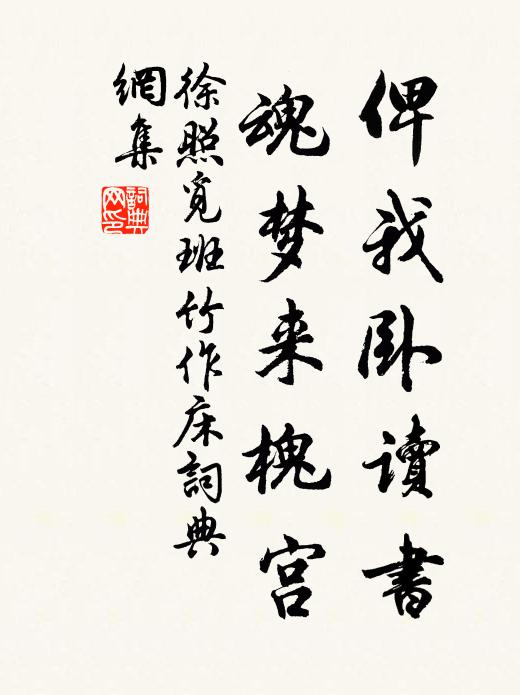 俾我卧读書
魂梦来槐宫
徐照覓班竹作床詞典
網集
詞典网印